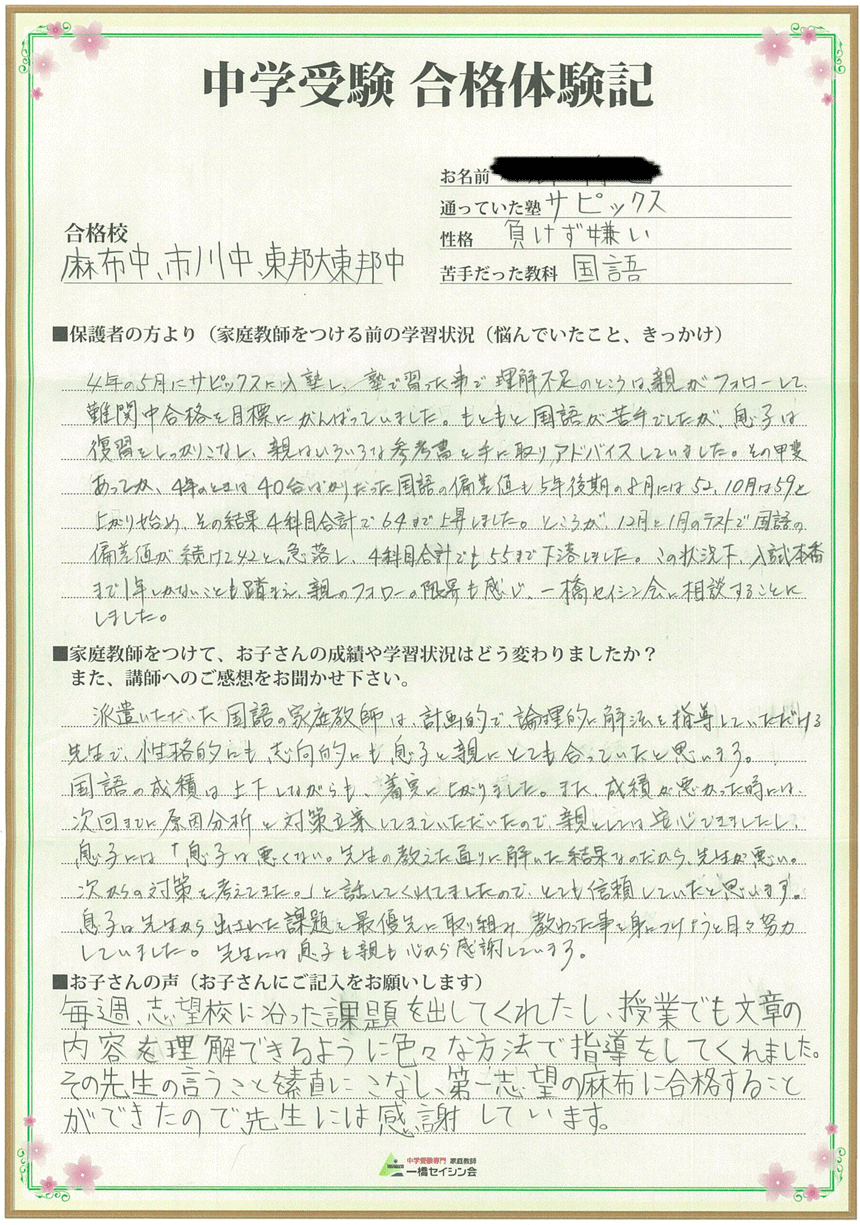 中学受験 合格体験記
お名前
通っていた塾 サピックス
性格 負けず嫌い
苦手だった教科 国語
合格校
麻布中、市川中、東邦大東邦中
■保護者の方より（家庭教師をつける前の学習状況（悩んでいたこと、きっかけ）
4年の5月にサピックスに入塾し、塾で習った事で理解不足のところは、親がフォローして、
難関中合格を目標にがんばっていました。もともと国語が苦手でしたが、息子は
復習をしっかりこなし、親はいろいろな参考書を手に取りアドバイスしていました。その甲斐
あってか、4年のときは40台ばかりだった国語の偏差値も5年後期の8月には52、10月は59と
上がり始め、その結果4科目合計で64まで上昇しました。ところが、12月と1月のテストで国語の
偏差値が続けて42と、急落し、4科目合計でも55まで下落しました。この状況下、入試本番
まで1年しかないことも踏まえ、親のフォローの限界も感じ、一橋セイシン会に相談することに
しました。
■家庭教師をつけて、お子さんの成績や学習状況はどう変わりましたか？
また、講師へのご感想をお聞かせ下さい。
派遣いただいた国語の家庭教師は、計画的で、論理的に解法を指導していただける
先生で、性格的にも志向的にも息子と親にとても合っていたと思います。
国語の成績は上下しながらも、着実に上がりました。また、成績が悪かった時には、
次回までに原因分析と対策立案してきていただいたので、親としては安心できましたし、
息子には「息子は悪くない。先生の教えた通りに解いた結果なのだから、先生が悪い。
次からの対策を考えてきた。」と話してくれてましたので、とても信頼していたと思います。
息子は先生から出された課題を最優先に取り組み、教わった事を身につけようと日々努力
していました。先生には息子も親も心から感謝しています。
■お子さんの声（お子さんにご記入をお願いします）
毎週、志望校に沿った課題を出してくれたし、授業でも文章の
内容を理解できるように色々な方法で指導をしてくれました。
その先生の言うことを素直にこなし、第一志望の麻布に合格すること
ができたので、先生には感謝しています。
中学受験専門 家庭教師
一橋セイシン会